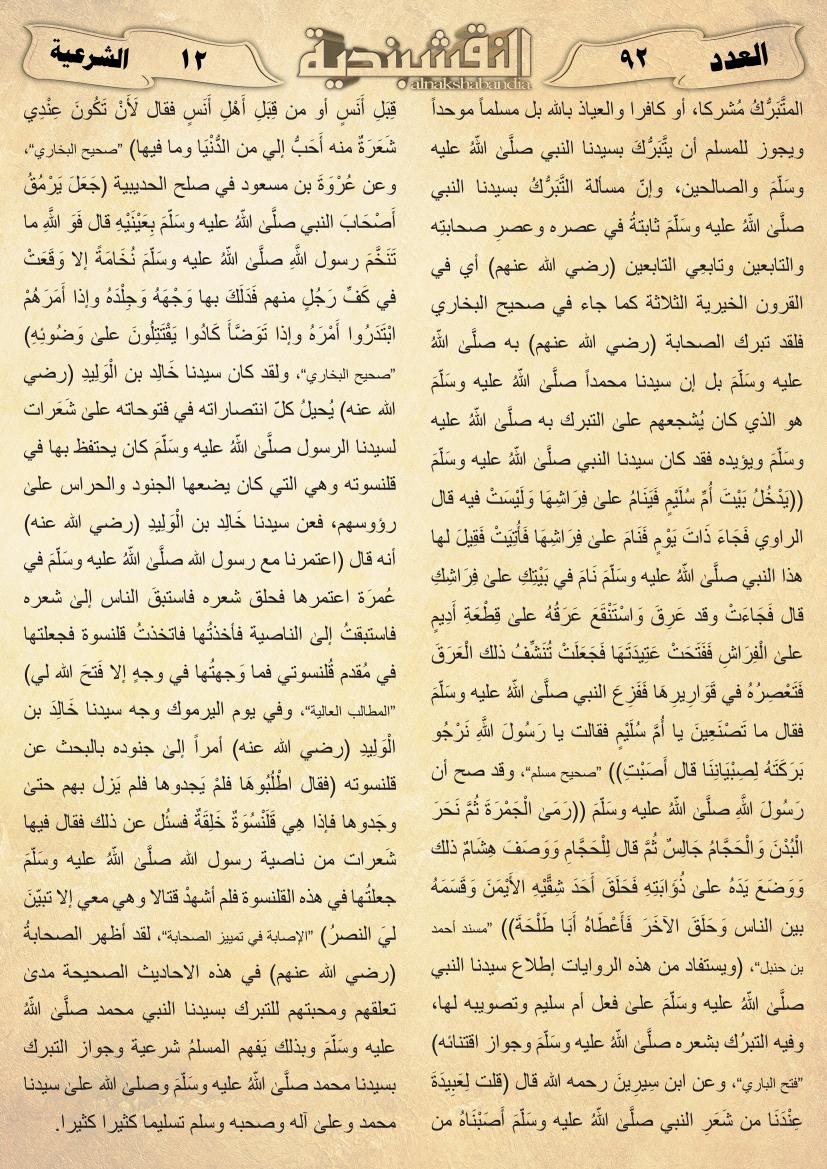 العدد
٩٢
النقشبندية
alnakshabandia
١٢
الشرعية
المتَّبَرُّكُ مُشركا، أو كافرا والعياذ بالله بل مسلماً موحداً
ويجوز للمسلم أن يتَّبَرُّكَ بسيدنا النبي صلَّىٰ اللهُ عليه
وسَلَّمَ والصالحين، وإنّ مسألة التَّبَرُّكُ بسيدنا النبي
صلَّىٰ اللهُ عليه وسَلَّمَ ثابتةٌ في عصره وعصرِ صحابتِه
والتابعين وتابعِي التابعين (رضي الله عنهم) أي في
القرون الخيرية الثلاثة كما جاء في صحيح البخاري
فلقد تبرك الصحابة (رضي الله عنهم) به صلَّىٰ اللهُ
عليه وسَلَّمَ بل إن سيدنا محمداً صلَّىٰ اللهُ عليه وسَلَّمَ
هو الذي كان يُشجعهم علىٰ التبرك به صلَّىٰ اللهُ عليه
وسَلَّمَ ويؤيده فقد كان سيدنا النبي صلَّىٰ اللهُ عليه وسَلَّمَ
((يَدْخُلُ بَيْتَ أُمِّ سُلَيْمٍ فَيَنَامُ علىٰ فِرَاشِهَا وَلَيْسَتْ فيه قال
الراوي فَجَاءَ ذَاتَ يَوْمٍ فَنَامَ علىٰ فِرَاشِهَا فَأُتِيَتْ فَقِيلَ لها
هذا النبي صلَّىٰ اللهُ عليه وسَلَّمَ نَامَ في بَيْتِكِ علىٰ فِرَاشِكِ
قال فَجَاءَتْ وقد عَرِقَ وَاسْتَنْقَعَ عَرَقُهُ علىٰ قِطْعَةِ أَدِيمٍ
علىٰ الْفِرَاشِ فَفَتَحَتْ عَتِيدَتَهَا فَجَعَلَتْ تُنَشِّفُ ذلك الْعَرَقَ
فَتَعْصِرُهُ في قَوَارِيرِهَا فَفَزِعَ النبي صلَّىٰ اللهُ عليه وسَلَّمَ
فقال ما تَصْنَعِينَ يا أُمَّ سُلَيْمٍ فقالت يا رَسُولَ اللَّهِ نَرْجُو
بَرَكَتَهُ لِصِبْيَانِنَا قال أَصَبْتِ)) ”صحيح مسلم“، وقد صح أن
رَسُولَ اللَّهِ صلَّىٰ اللهُ عليه وسَلَّمَ ((رَمَىٰ الْجَمْرَةَ ثُمَّ نَحَرَ
الْبُدْنَ وَالْحَجَّامُ جَالِسٌ ثُمَّ قال لِلْحَجَّامِ وَوَصَفَ هِشَامٌ ذلك
وَوَضَعَ يَدَهُ علىٰ ذُؤَابَتِهِ فَحَلَقَ أَحَدَ شِقَّيْهِ الأَيْمَنَ وَقَسَمَهُ
بين الناس وَحَلَقَ الآخَرَ فَأَعْطَاهُ أَبَا طَلْحَةَ)) ”مسند احمد
بن حنبل“، (ويستفاد من هذه الروايات إطلاع سيدنا النبي
صلَّىٰ اللهُ عليه وسَلَّمَ علىٰ فعل أم سليم وتصويبه لها،
وفيه التبرُك بشعره صلَّىٰ اللهُ عليه وسَلَّمَ وجواز اقتنائه)
”فتح الباري“، وعن ابن سِيرِينَ رحمه الله قال (قلت لِعَبِيدَةَ
عِنْدَنَا من شَعَرِ النبي صلَّىٰ اللهُ عليه وسَلَّمَ أَصَبْنَاهُ من
قِبَلِ أَنَسٍ أو من قِبَلِ أَهْلِ أَنَسٍ فقال لَأَنْ تَكُونَ عِنْدِي
شَعَرَةٌ منه أَحَبُّ إلي من الدُّنْيَا وما فيها) ”صحيح البخاري“،
وعن عُرْوَةَ بن مسعود في صلح الحديبية (جَعَلَ يَرْمُقُ
أَصْحَابَ النبي صلَّىٰ اللهُ عليه وسَلَّمَ بِعَيْنَيْهِ قال فَوَ اللَّهِ ما
تَنَخَّمَ رسول اللَّهِ صلَّىٰ اللهُ عليه وسَلَّمَ نُخَامَةً إلا وَقَعَتْ
في كَفِّ رَجُلٍ منهم فَدَلَكَ بها وَجْهَهُ وَجِلْدَهُ وإذا أمَرَهُمْ
ابْتَدَرُوا أَمْرَهُ وإذا تَوَضَّأَ كَادُوا يَقْتَتِلُونَ علىٰ وَضُوئِهِ)
”صحيح البخاري“، ولقد كان سيدنا خَالِد بن الْوَلِيدِ (رضي
الله عنه) يُحيلُ كلّ انتصاراته في فتوحاته علىٰ شَعَرات
لسيدنا الرسول صلَّىٰ اللهُ عليه وسَلَّمَ كان يحتفظ بها في
قلنسوته وهي التي كان يضعها الجنود والحراس علىٰ
رؤوسهم، فعن سيدنا خَالِد بن الْوَلِيدِ (رضي الله عنه)
أنه قال (اعتمرنا مع رسول الله صلَّىٰ اللهُ عليه وسَلَّمَ في
عُمرَة اعتمرها فحلق شعره فاستبقَ الناس إلىٰ شعره
فاستبقتُ إلىٰ الناصية فأخذتُها فاتخذتُ قلنسوة فجعلتها
في مُقدم قُلنسوتي فما وَجهتُها في وجهٍ إلا فَتحَ الله لي)
”المطالب العالية“، وفي يوم اليرموك وجه سيدنا خَالِدَ بن
الْوَلِيدِ (رضي الله عنه) أمراً إلىٰ جنوده بالبحث عن
قلنسوته (فقال اطْلُبُوهَا فلمْ يَجدوها فلم يَزل بهم حتىٰ
وجَدوها فإذا هِي قَلَنْسُوَةٌ خَلِقَةٌ فسئل عن ذلك فقال فيها
شَعرات من ناصية رسول الله صلَّىٰ اللهُ عليه وسَلَّمَ
جعلتُها في هذه القلنسوة فلم أشهدْ قتالا وهي معي إلا تبيّنَ
ليَ النصرُ) ”الإصابة في تمييز الصحابة“، لقد أظهر الصحابةُ
(رضي الله عنهم) في هذه الاحاديث الصحيحة مدىٰ
تعلقهم ومحبتهم للتبرك بسيدنا النبي محمد صلَّىٰ اللهُ
عليه وسَلَّمَ وبذلك يَفهم المسلمُ شرعية وجواز التبرك
بسيدنا محمد صلَّىٰ اللهُ عليه وسَلَّمَ وصلىٰ الله علىٰ سيدنا
محمد وعلىٰ آله وصحبه وسلم تسليما كثيرا كثيرا.